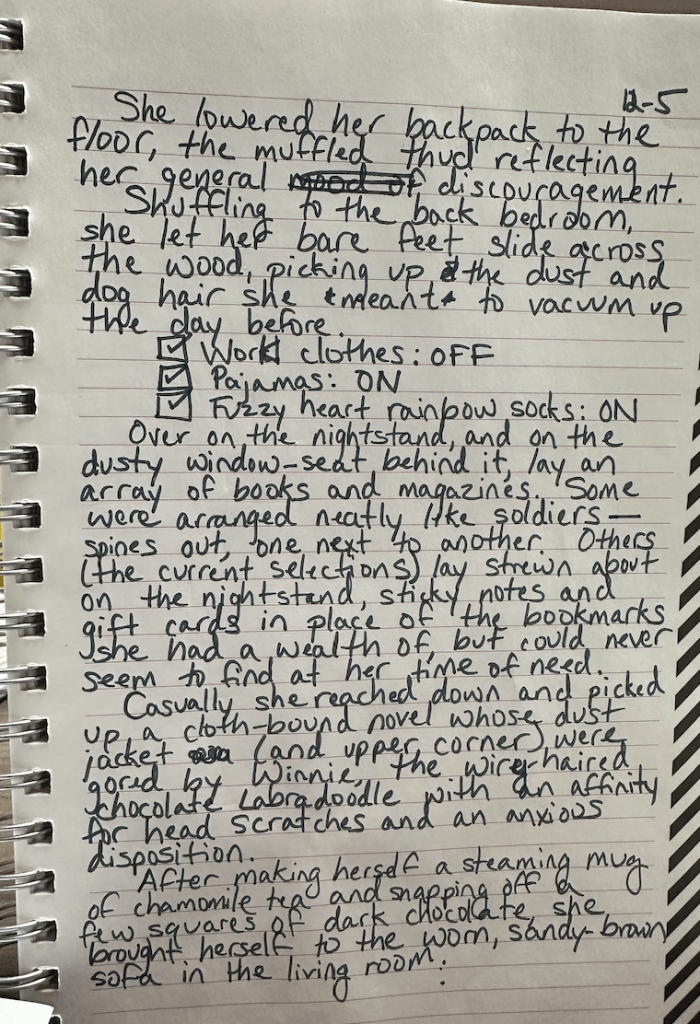 12-5
She lowered her backpack to the
floor, the muffled thud reflecting
her general mood of discouragement.
Shuffling to the back bedroom,
she let her bare feet slide across
the wood, picking up the dust and
dog hair she *meant* to vacuum up
the day before.
☑ Work clothes: OFF
☑ Pajamas: ON
☑ Fuzzy heart rainbow socks: ON
Over on the nightstand, and on the
dusty window-seat behind it, lay an
array of books and magazines. Some
were arranged neatly like soldiers—
spines out, one next to another. Others
(the current selections) lay strewn about
on the nightstand, sticky notes and
gift cards in place of the bookmarks
she had a wealth of, but could never
seem to find at her time of need.
Casually she reached down and picked
up a cloth-bound novel whose dust
jacket (and upper corner) were
gored by Winnie, the wirey-haired
chocolate Labradoodle with an affinity
for head scratches and an anxious
disposition.
After making herself a steaming mug
of chamomile tea and snapping off a
few squares of dark chocolate, she
brought herself to the worn, sandy-brown
sofa in the living room.